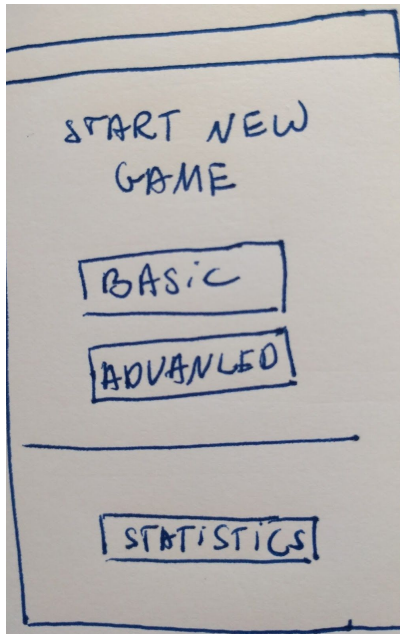 START NEW
GAME
BASiC
ADVANCED
STATiSTiCS